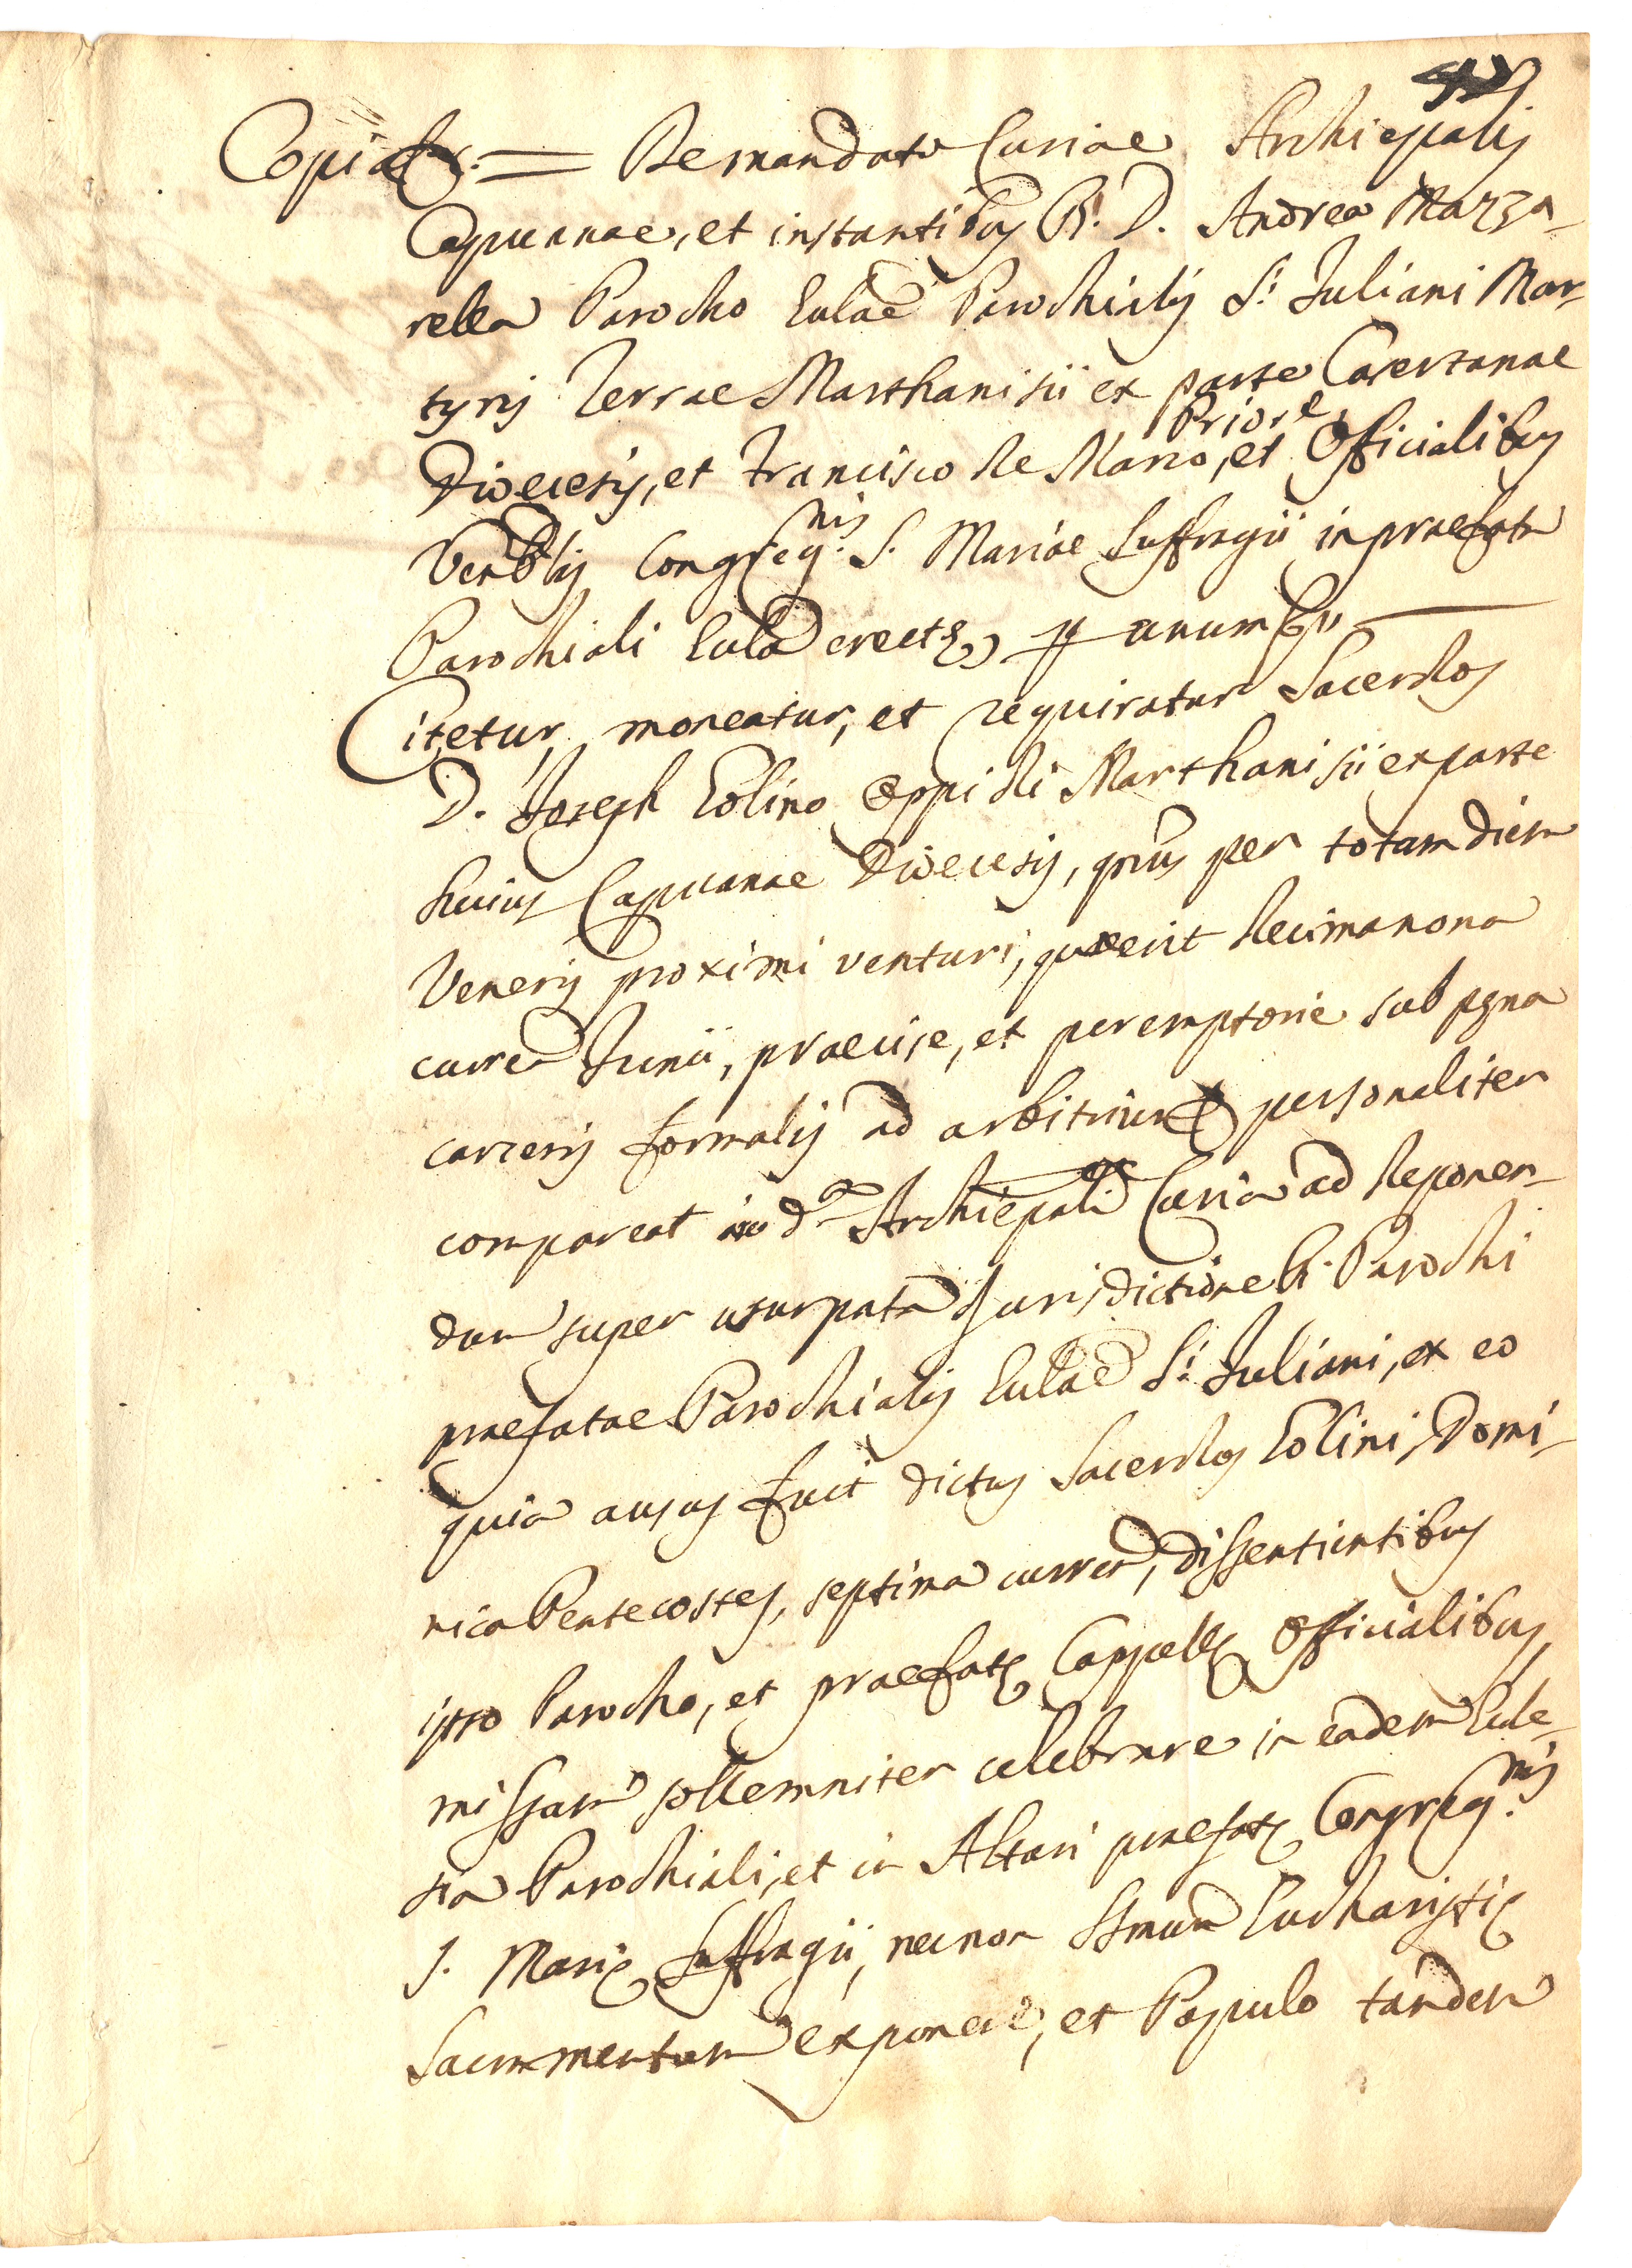 Copia = De mandato Curiae Archiepalis
Capuanae, et instantibus R. D. Andrea Mazza-
rella Parocho Eccl̃ae Parochialis S.i Juliani Mar-
tyris Terrae Marthanisii ex parte Casertanae
Dioecesis, et Francisco de Mario, Priore, et Officialibus
Venblis Congreg.nis S. Mariae Suffragii in praefata
Parochiali Eccl̃a erectę,
Citetur, moneatur, et requiratur Sacerdos
D. Joseph Colino Oppidi Marthanisii ex parte
huius Capuanae Dioecesis, per totam diem
Veneris proximi venturi, quae erit decimanona
curren Junii, praecise, et peremptorie sub pęna
carceris formalis ad arbitrium personaliter
compareat in d.a Archiepali Curia ad deponen-
dum super usurpata Jurisdictione R. Parochi
praefatae Parochialis Eccl̃ae S.i Juliani, ex eo
quia ausus fuit dictus Sacerdos Colini, Domi-
nica Pentecostes, septima curren, dissentientibus
ipso Parocho, et praefatę Cappellę Officialibus
missam sollemniter celebrare in eadem Eccle-
sia Parochiali, et in Altari praefatę Congreg.nis
S. Marię Suffragii, necnon SSmum Eucharistię
Sacramentum exponere, et Populo tandem